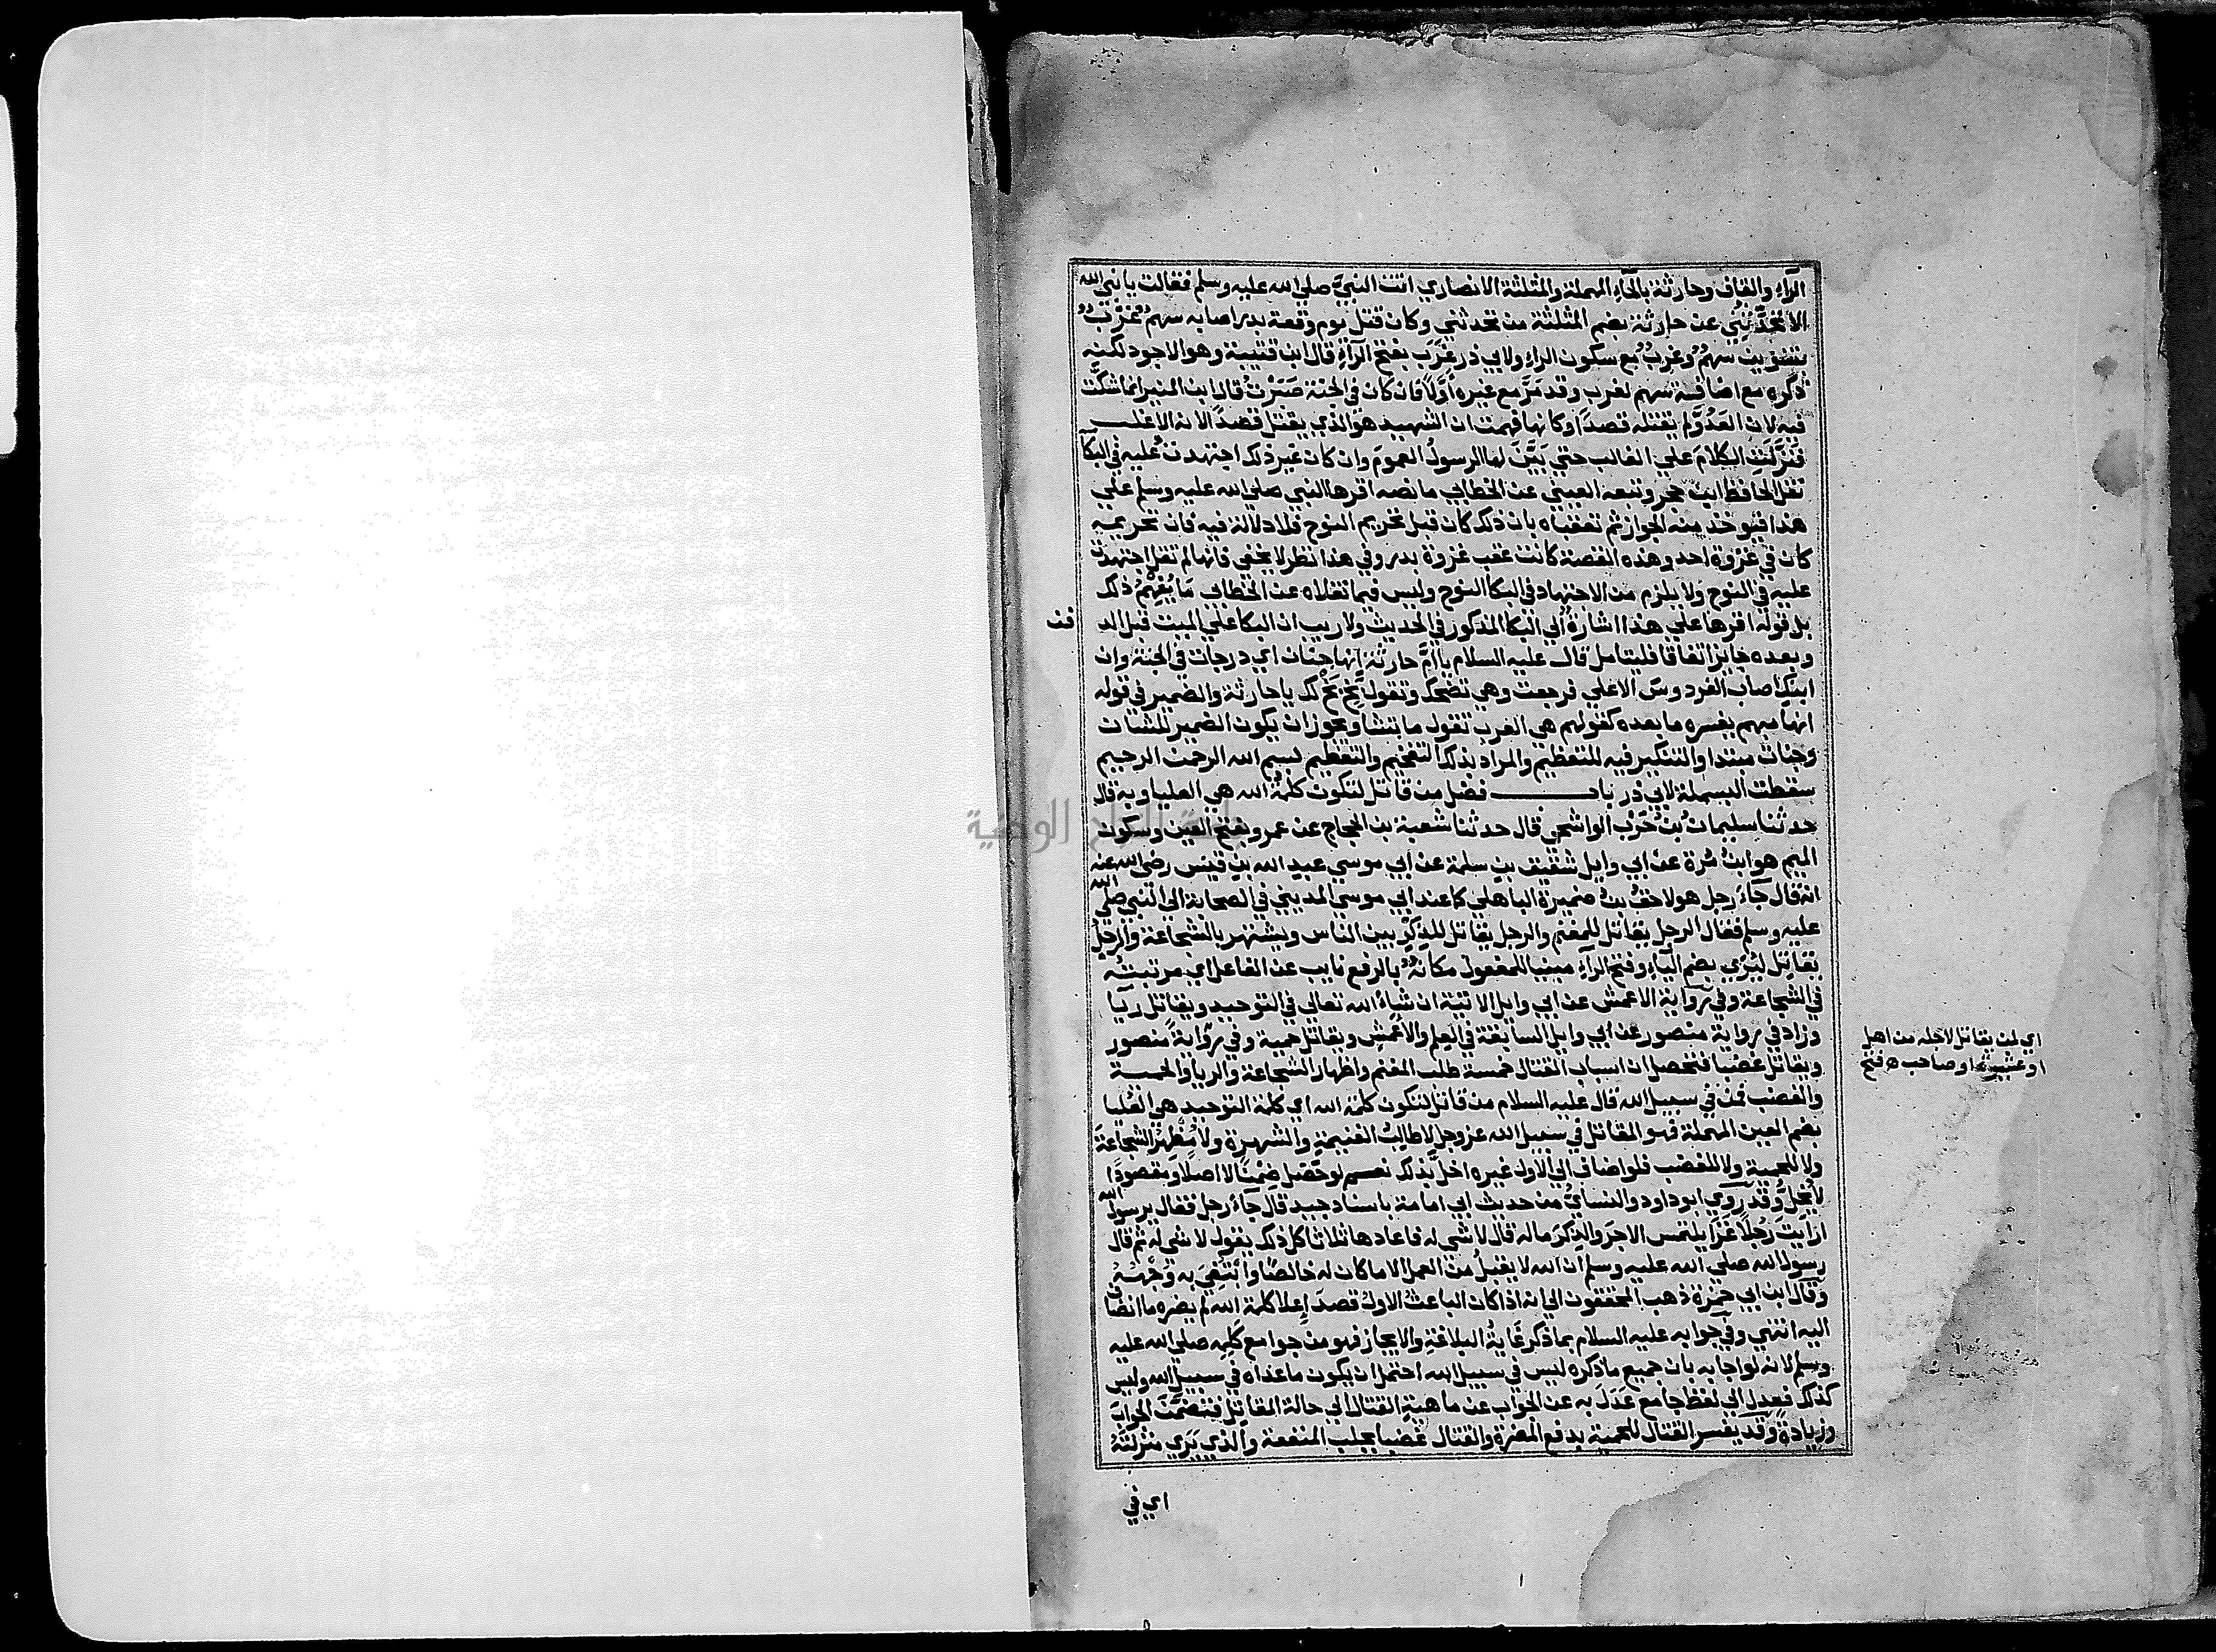 الرآء والقاف وحارثة بالحآء المهملة والمثلثة الانصاري اتت النبيَّ صلي الله عليه وسلم فقالت يا نبي الله
الا تحدِّثُنِي عن حارثة بضم المثلثة من تحدثني وكان قتل يوم وقعة بدر اصابه سهمٌ غَرْبٌ
بتنوين سهمٌ وغربٌ مع سكون الراء ولابي ذر غَرَب بفتح الرآء قال ابن قتيبة وهو الاجود لكنه
ذكره مع اضافة سهم لغرب وقد مَرَّ مع غيره أوَّلاً فان كان في الجنة صَبَرْتُ قال ابن المنير انما شكَّت
فيه لان العَدُوَّ لم يقتله قصداً وكانها فهمت ان الشهيد هو الذي يقتل قصداً لانه الاغلب
فنزَّلَتِ الكلامَ علي الغالب حتي بَيَّنَ لها الرسولُ العمومَ وان كان غير ذلك اجتهدت عليه في البكآ
نقل الحافظ ابن حجر وتبعه العيني عن الخطابي ما نصه اقرها النبي صلي الله عليه وسلم علي
هذا فيوخذ منه الجواز ثم تعقباه بان ذلك كان قبل تحريم النوح فلا دلالة فيه فان تحريمه
كان في غزوة احد وهذه القصة كانت عقب غزوة بدر وفي هذا نظر لا يخفي فانها لم تقل اجتهدت
عليه في النوح ولا يلزم من الاجتهاد في البكا النوح وليس فيما نقلاه عن الخطابي مَا يُفْهِمُ ذلك
بل قوله اقرها علي هذا اشارة الي البكا المذكور في الحديث ولا ريب ان البكا علي الميت قبل الد فن
وبعده جايز اتفاقا فليتامل قال عليه السلام يا امَّ حارثة انها جنات اي درجات في الجنة وان
ابنَكِ اصاب الفردوسَ الاعلي فرجعت وهي تضحك وتقول بَخٍ بَخْ لك يا حارثة والضمير في قوله
انها مبهم يفسره ما بعده كقولهم هي العرب تقول ما تشا ويجوز ان يكون الضمير للشان
وجنات مبتدا والتنكير فيه للتعظيم والمراد بذلك التفخيم والتعظيم بسم الله الرحمن الرحيم
سقطت البسملة لابي ذر باب فضل من قاتل لتكون كلمةُ الله هي العليا وبه قال
حدثنا سليمانُ بنُ حَرْب الواشحي قال حدثنا شعبة بن الحجاج عن عمرو بفتح العين وسكون
الميم هو ابنُ مُرة عن ابي وايل شقيق بن سلمة عن ابي موسي عبد الله بن قيس رضي الله عنه
انه قال جآء رجل هو لاحقُ بنُ ضميرة الباهلي كما عند ابي موسي المديني في الصحابة الي النبي صلي الله
عليه وسلم فقال الرجل يقاتل للمغنم والرجل يقاتل للذِكْرِ بين الناس ويشتهر بالشجاعة والرجلُ
يقاتِل ليُرَي بضم اليآء وفتح الرآء مبنيا للمفعول مكانُهُ بالرفع نايب عن الفاعل اي مرتبتُه
في الشجاعة وفي رواية الاعمش عن ابي وايل الاتية ان شآء الله تعالي في التوحيد ويقاتل ريآ
وزاد في رواية منصور عن ابي وايل السابقة في العلم والاعمش ويقاتل حمية وفي رواية منصور
ويقاتل غضبا فتحصل ان اسباب القتال خمسة طلب المغنم واظهار الشجاعة والريا والحمية
والغضب فمن في سبيل الله قال عليه السلام من قاتل لتكون كلمة الله اي كلمة التوحيد هي العُليا
بضم العين المهملة فهو المقاتل في سبيل الله عز وجل لا طالبُ الغنيمةِ والشهرةِ ولا مُظهِرُ الشجاعةَ
ولا للحمية ولا للغضب فلو اضاف الي الاول غيره اخلَّ بذلك نعم لو حَصَل ضِمْنًا لا اصلاً ومقصودًا
لا يُخِلُّ وقد روي ابو داود والنسايُّ من حديث ابي امامة باسناد جيد قال جآء رجل فقال يرسول الله
ارايت رَجُلاً غزَا يلتمس الاجرَ والذكرَ ما له قال لا شي له فاعادها ثلاثا كل ذلك يقول لا شي له ثم قال
رسول الله صلي الله عليه وسلم ان الله لا يقبلُ من العمل الا ما كان له خالصًا وابتُغِيَ به وَجْهُهُ
وقال ابن ابي جمرة ذهب المحققون الي انه اذا كان الباعثُ الاولُ قصدَ إعلا كلمة الله لم يضره ما انضاف
اليه انتهي وفي جوابه عليه السلام بما ذكر غايةُ البلاغةِ والايجاز فهو من جوامع كَلِمِه صلي الله عليه
وسلم لانه لو اجابه بان جميع ما ذكره ليس في سبيل الله احتمل ان يكون ما عداه في سبيل الله وليس
كذلك فعدل الي لفظ جامع عَدَلَ به عن الجواب عن ماهيةِ القتال الي حالة المقاتِل فتضمَّن الجوابَ
وزيادةً وقد يفسر القتال للحمية بدفع المضرة والقتال غضبا بجلب المنفعة والذي يَرَي منزلتَهُ
اي في
اي لمن يقاتل لاجله من اهل
او عشيرة او صاحب ه فتح